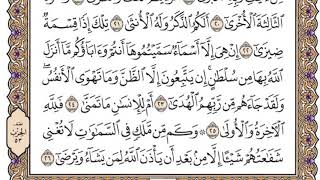 الثَّالِثَةَ الْأُخْرَىٰ ٢٠ أَلَكُمُ الذَّكَرُ وَلَهُ الْأُنثَىٰ ٢١ تِلْكَ إِذًا قِسْمَةٌ
ضِيزَىٰ ٢٢ إِنْ هِيَ إِلَّا أَسْمَاءٌ سَمَّيْتُمُوهَا أَنتُمْ وَآبَاؤُكُم مَّا أَنزَلَ
اللَّهُ بِهَا مِن سُلْطَانٍ ۚ إِن يَتَّبِعُونَ إِلَّا الظَّنَّ وَمَا تَهْوَى الْأَنفُسُ ۖ
وَلَقَدْ جَاءَهُم مِّن رَّبِّهِمُ الْهُدَىٰ ٢٣ أَمْ لِلْإِنسَانِ مَا تَمَنَّىٰ ٢٤ فَلِلَّهِ
الْآخِرَةُ وَالْأُولَىٰ ٢٥ ۞ وَكَم مِّن مَّلَكٍ فِي السَّمَاوَاتِ لَا تُغْنِي
شَفَاعَتُهُمْ شَيْئًا إِلَّا مِن بَعْدِ أَن يَأْذَنَ اللَّهُ لِمَن يَشَاءُ وَيَرْضَىٰ ٢٦